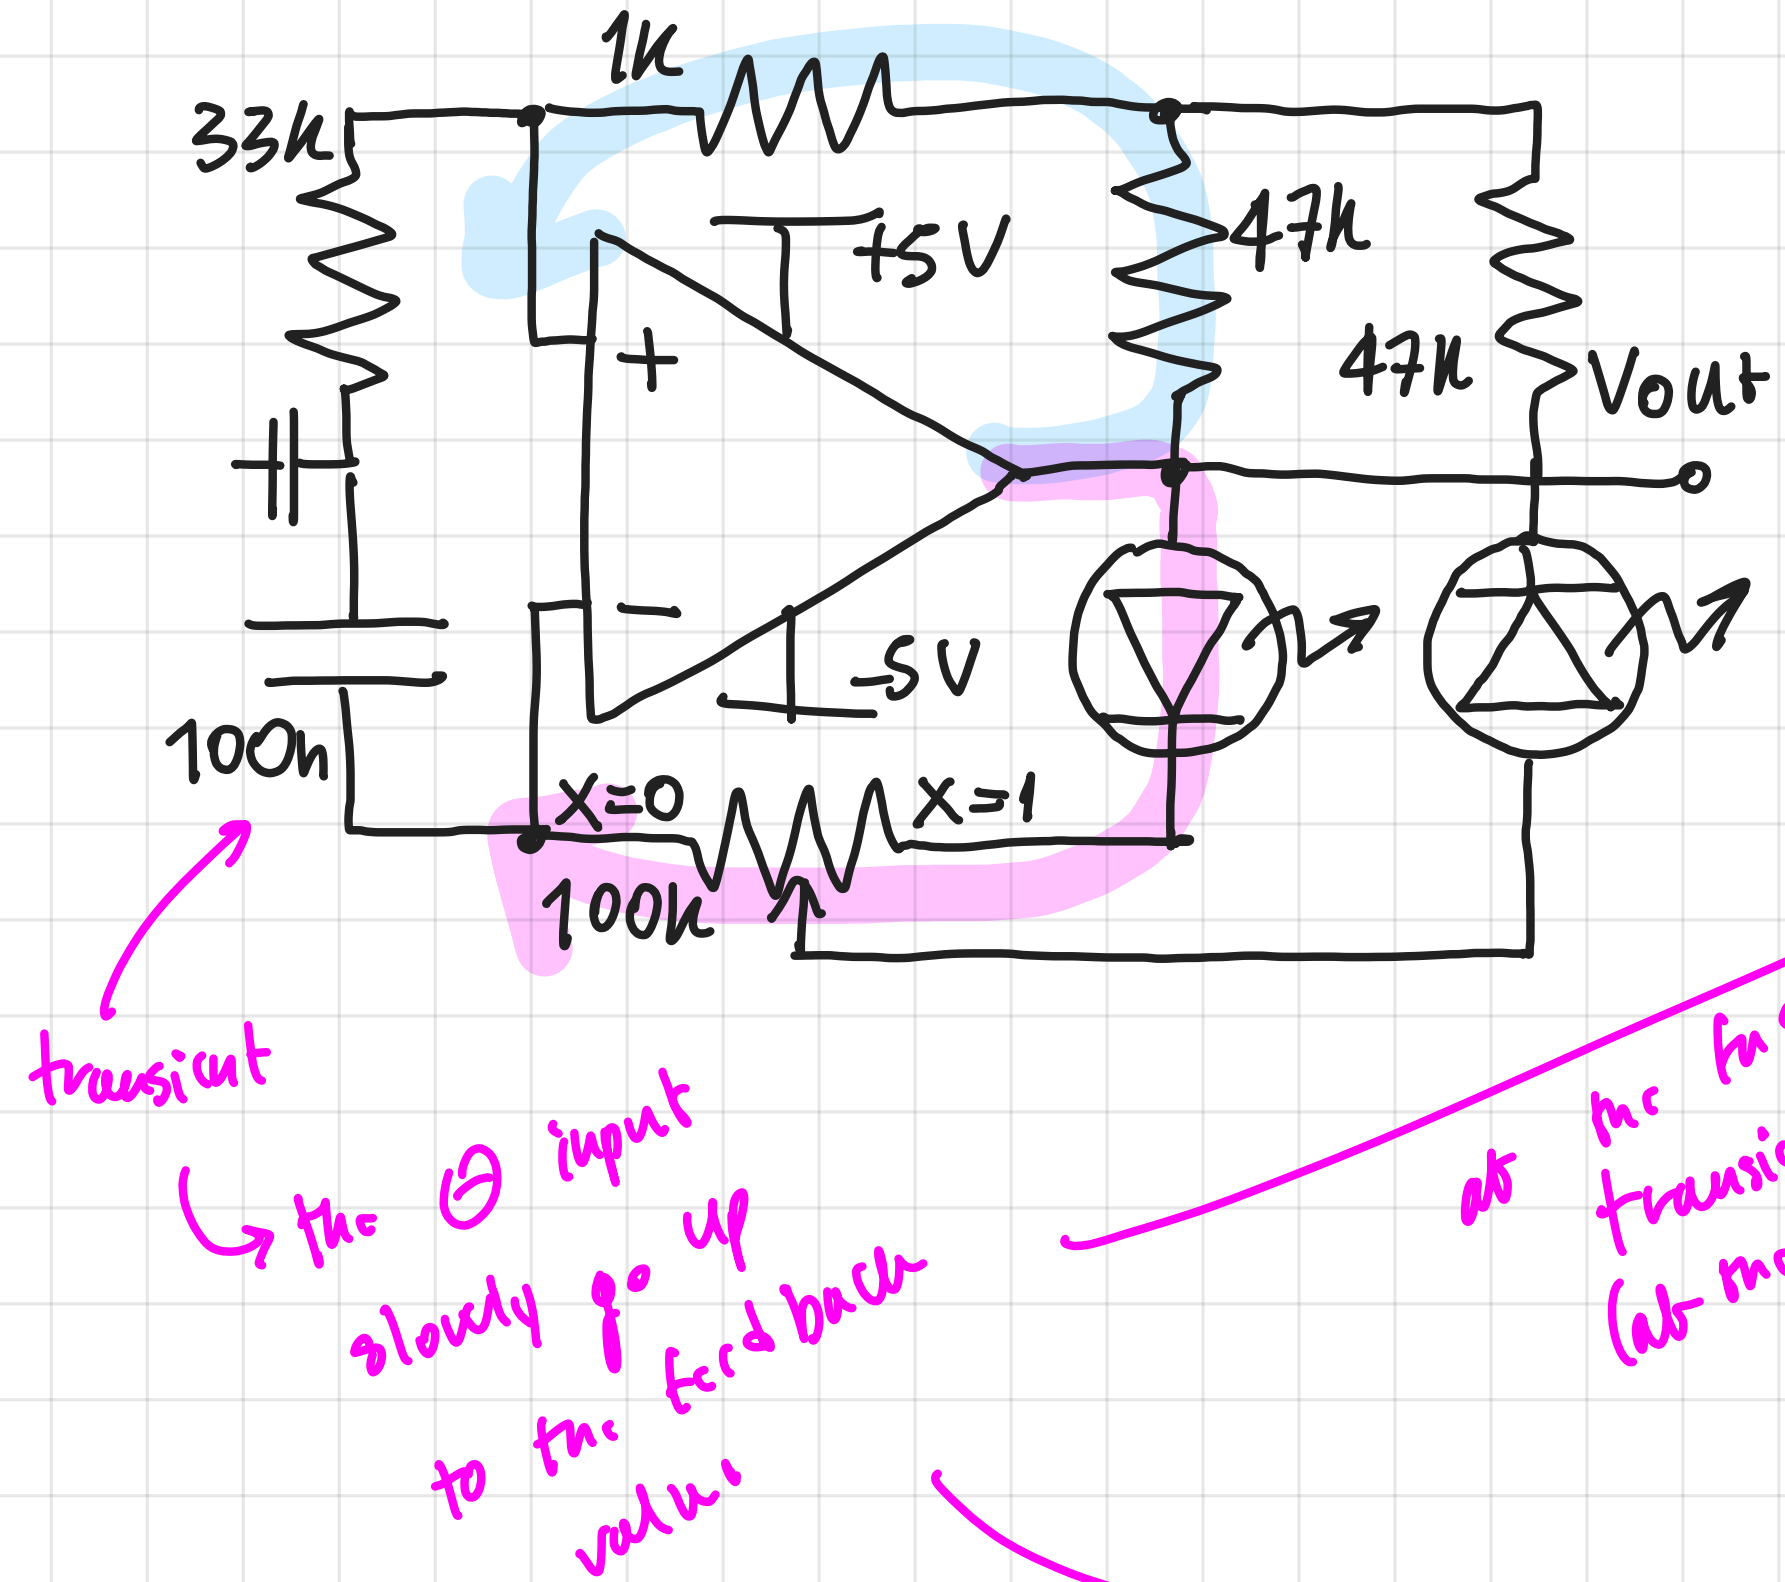 1K
33K
+5V
47K
47K
Vout
+
-
-5V
100n
x=0
x=1
100K
transient
the ⊖ input
slowly go up
to the feedback
value
at the
transi
(at the